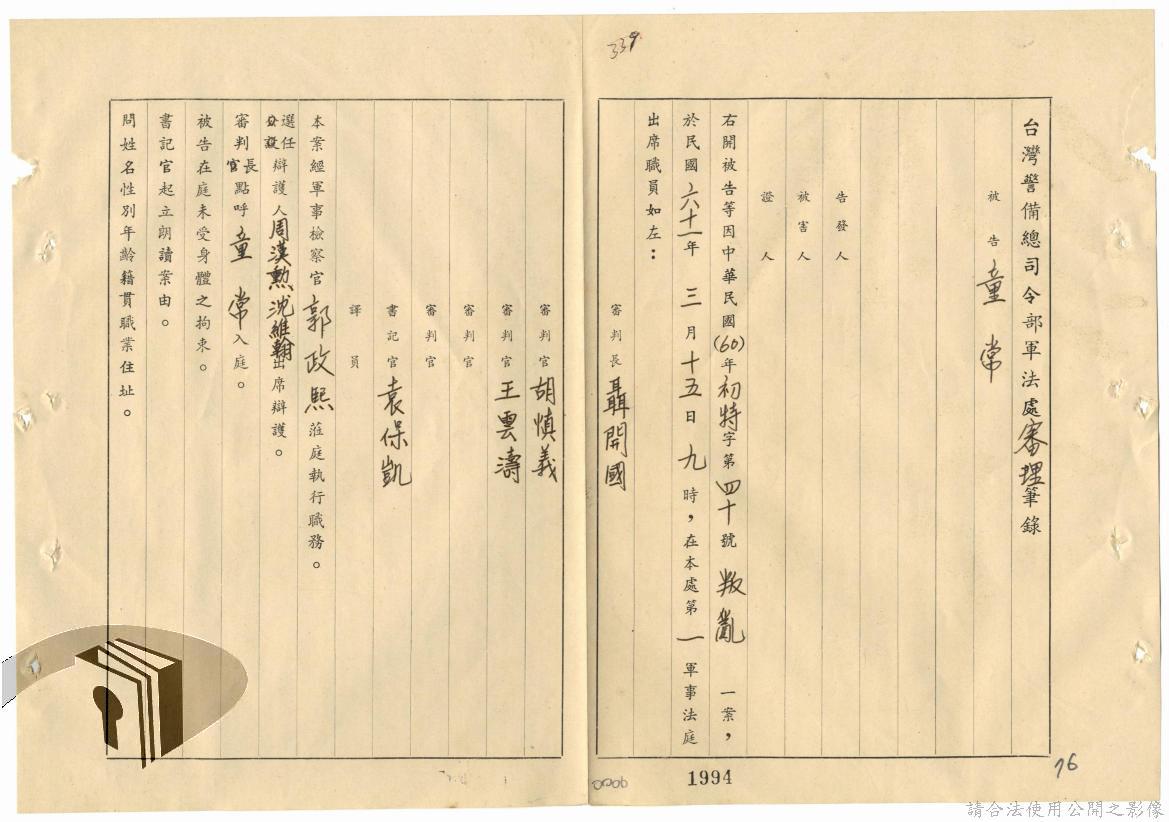 339
台灣警備總司令部軍法處審理筆錄
被告 童常
告發人
被害人
證人
右開被告等因中華民國(60)年初特字第四十號叛亂一案，
於民國六十一年三月十五日九時，在本處第一軍事法庭
出席職員如左：
審判長 聶開國
審判官 胡慎義
審判官 王雲濤
審判官
審判官
書記官 袁保凱
譯員
本案經軍事檢察官郭政熙蒞庭執行職務。
選任辯護人周漢勲沈維翰出席辯護。
公設
審判長點呼童常入庭。
官
被告在庭未受身體之拘束。
書記官起立朗讀案由。
問姓名性別年齡籍貫職業住址。
1994
76
請合法使用公開之影像